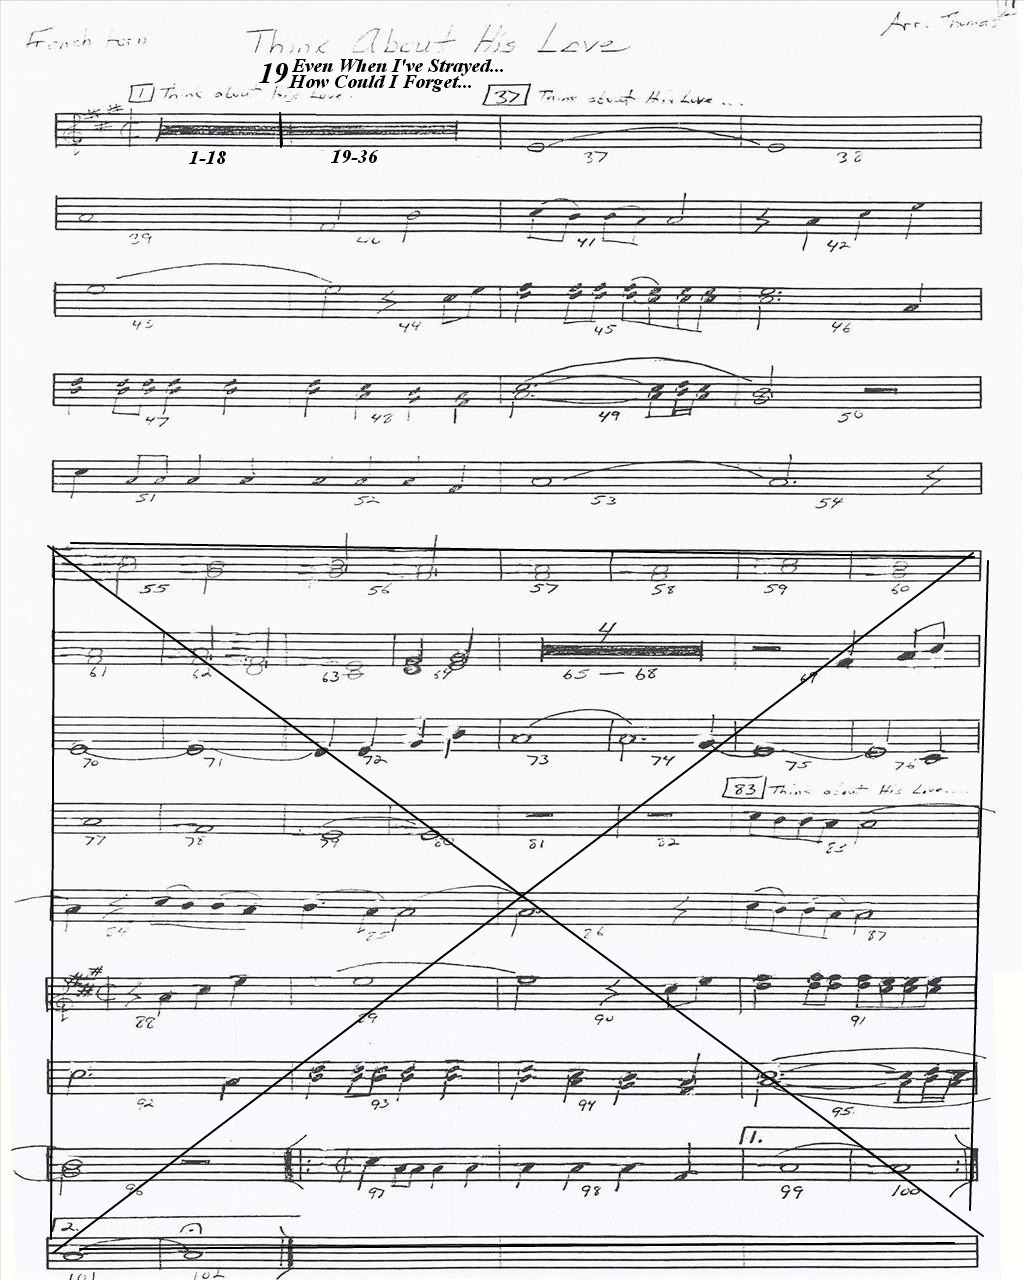 French horn
Think About His Love
Arr. Thomas
19 Even When I've Strayed...
How Could I Forget...
1 Think about His Love.
37 Think about His Love...
1-18 19-36 37 38
39 40 41 42
43 44 45 46
47 48 49 50
51 52 53 54
55 56 57 58 59 60
4
61 62 63 64 65 — 68 69
70 71 72 73 74 75 76
83 Think about His Love...
77 78 79 80 81 82 83
84 85 86 87
88 89 90 91
92 93 94 95
1.
96 97 98 99 100
2.
101 102